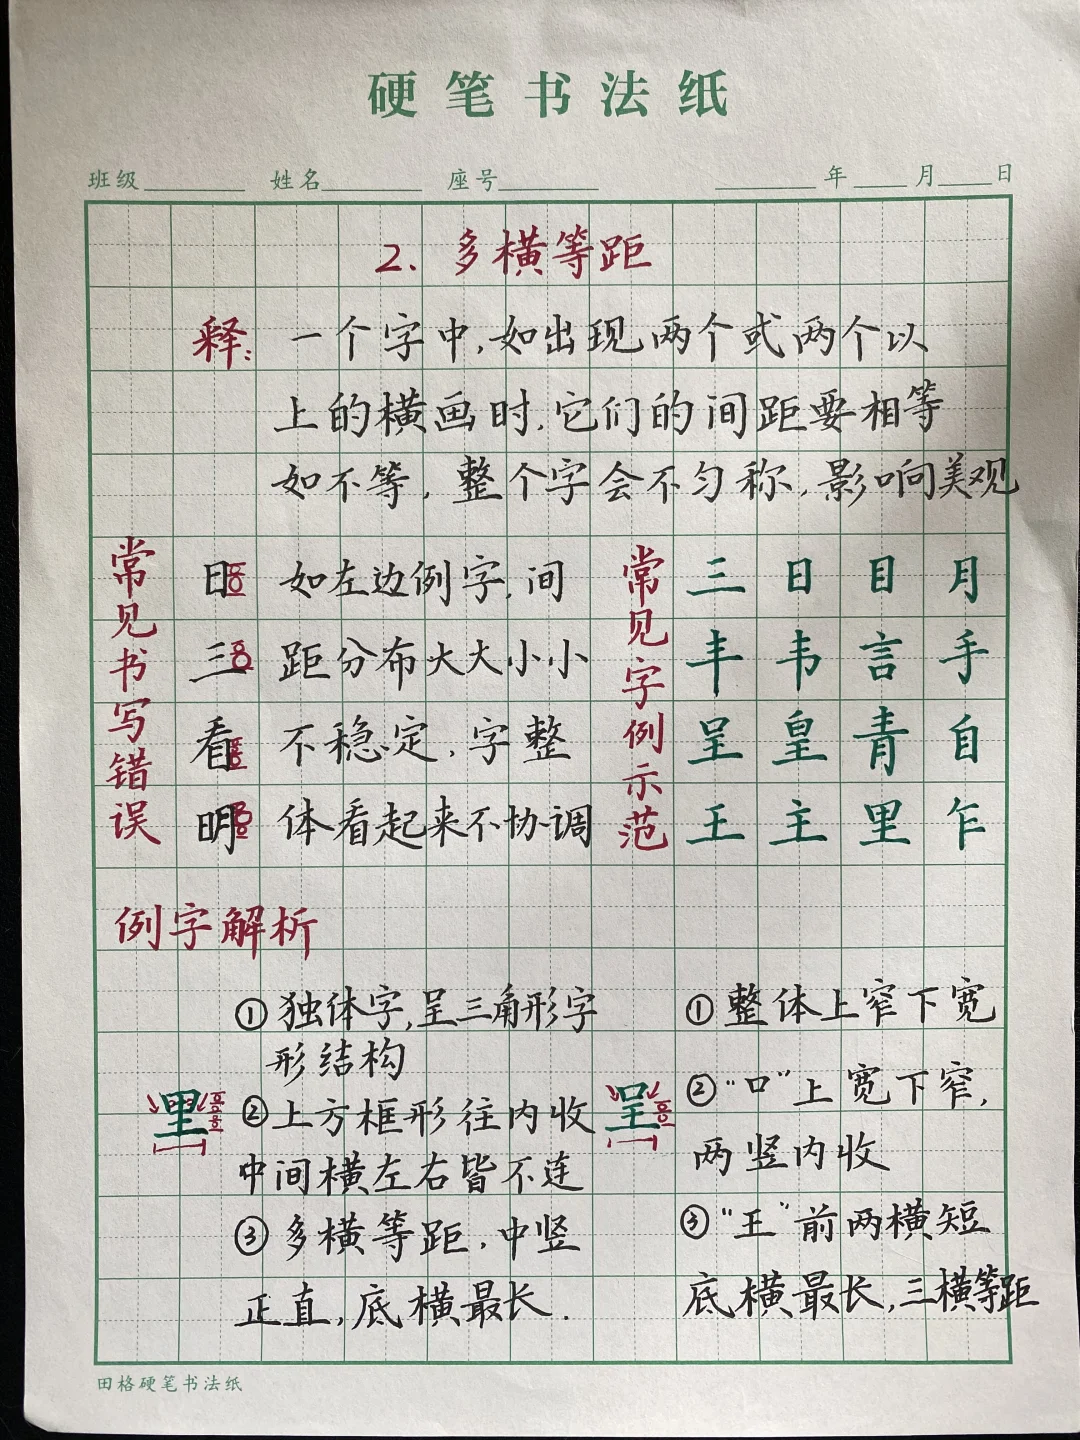 硬笔书法纸
班级 姓名 座号 年 月 日
2. 多横等距
释: 一个字中,如出现两个或两个以
上的横画时,它们的间距要相等
如不等,整个字会不匀称,影响美观
常见书写错误
日 如左边例字,间
三 距分布大大小小
看 不稳定,字整
明 体看起来不协调
常见字例示范
三 日 目 月
丰 韦 言 手
呈 皇 青 自
王 主 里 乍
例字解析
里
①独体字,呈三角形字
形结构
②上方框形往内收
中间横左右皆不连
③多横等距,中竖
正直,底横最长.
呈
①整体上窄下宽
②“口”上宽下窄,
两竖内收
③“王”前两横短
底横最长,三横等距
田格硬笔书法纸